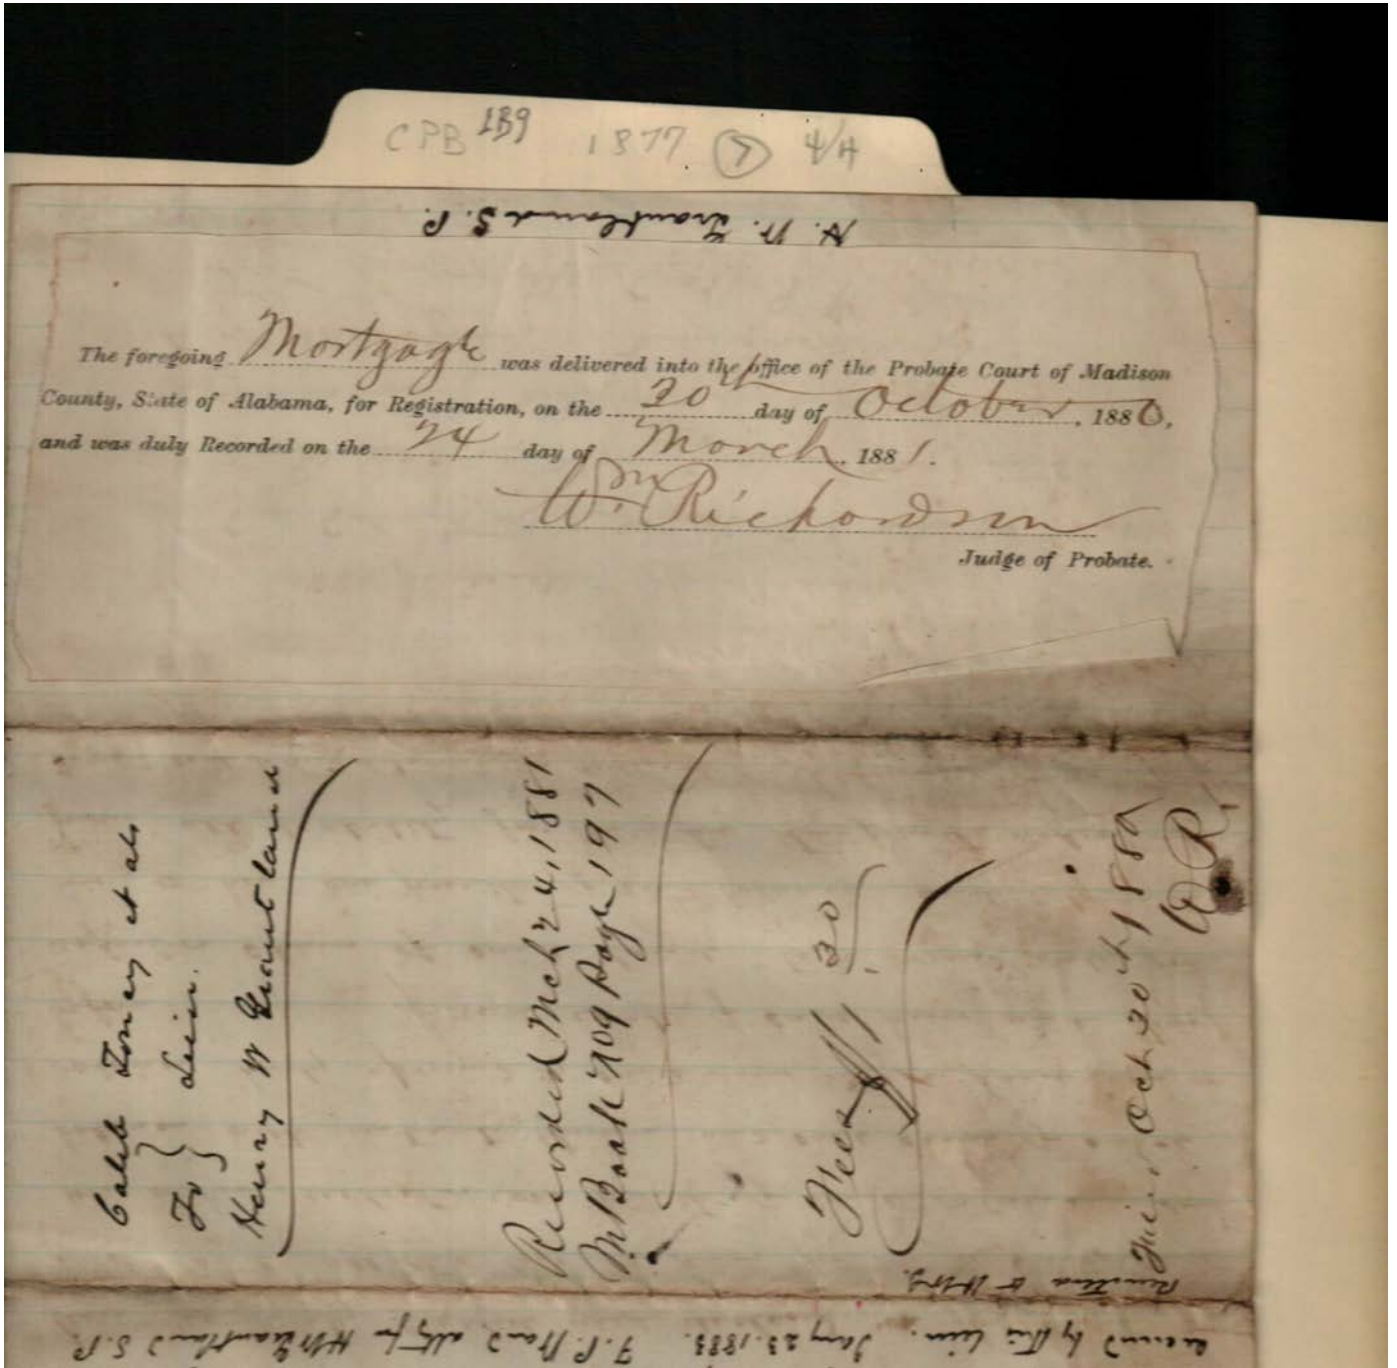 CPB 1877 (7) 4/H
H. W. Grantland S. P.
The foregoing Mortgage was delivered into the office of the Probate Court of Madison
County, State of Alabama, for Registration, on the 30 day of October, 1880,
and was duly Recorded on the 24 day of March, 1881.
Wm Richardson
Judge of Probate.
Caleb Toney et als
To } Lien.
Henry W Grantland
Recorded Mch 24, 1881
M. Book Page 197
Fees $1.30
Oct 30th 1880
W R,
by this lien. Jany 23. 1883. atty for H W Grantland S. P.